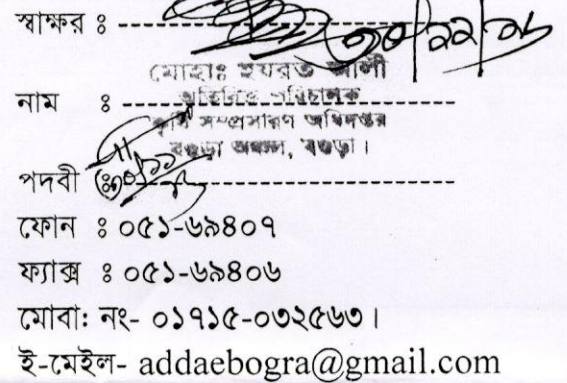 স্বাক্ষর ঃ
৩০/১১/১৬
মোহাঃ হযরত আলী
নাম ঃ
অতিরিক্ত পরিচালক
কৃষি সম্প্রসারণ অধিদপ্তর
বগুড়া অঞ্চল, বগুড়া।
পদবী ঃ
ফোন ঃ ০৫১-৬৯৪০৭
ফ্যাক্স ঃ ০৫১-৬৯৪০৬
মোবা: নং- ০১৭১৫-০৩২৫৬৩।
ই-মেইল- addaebogra@gmail.com